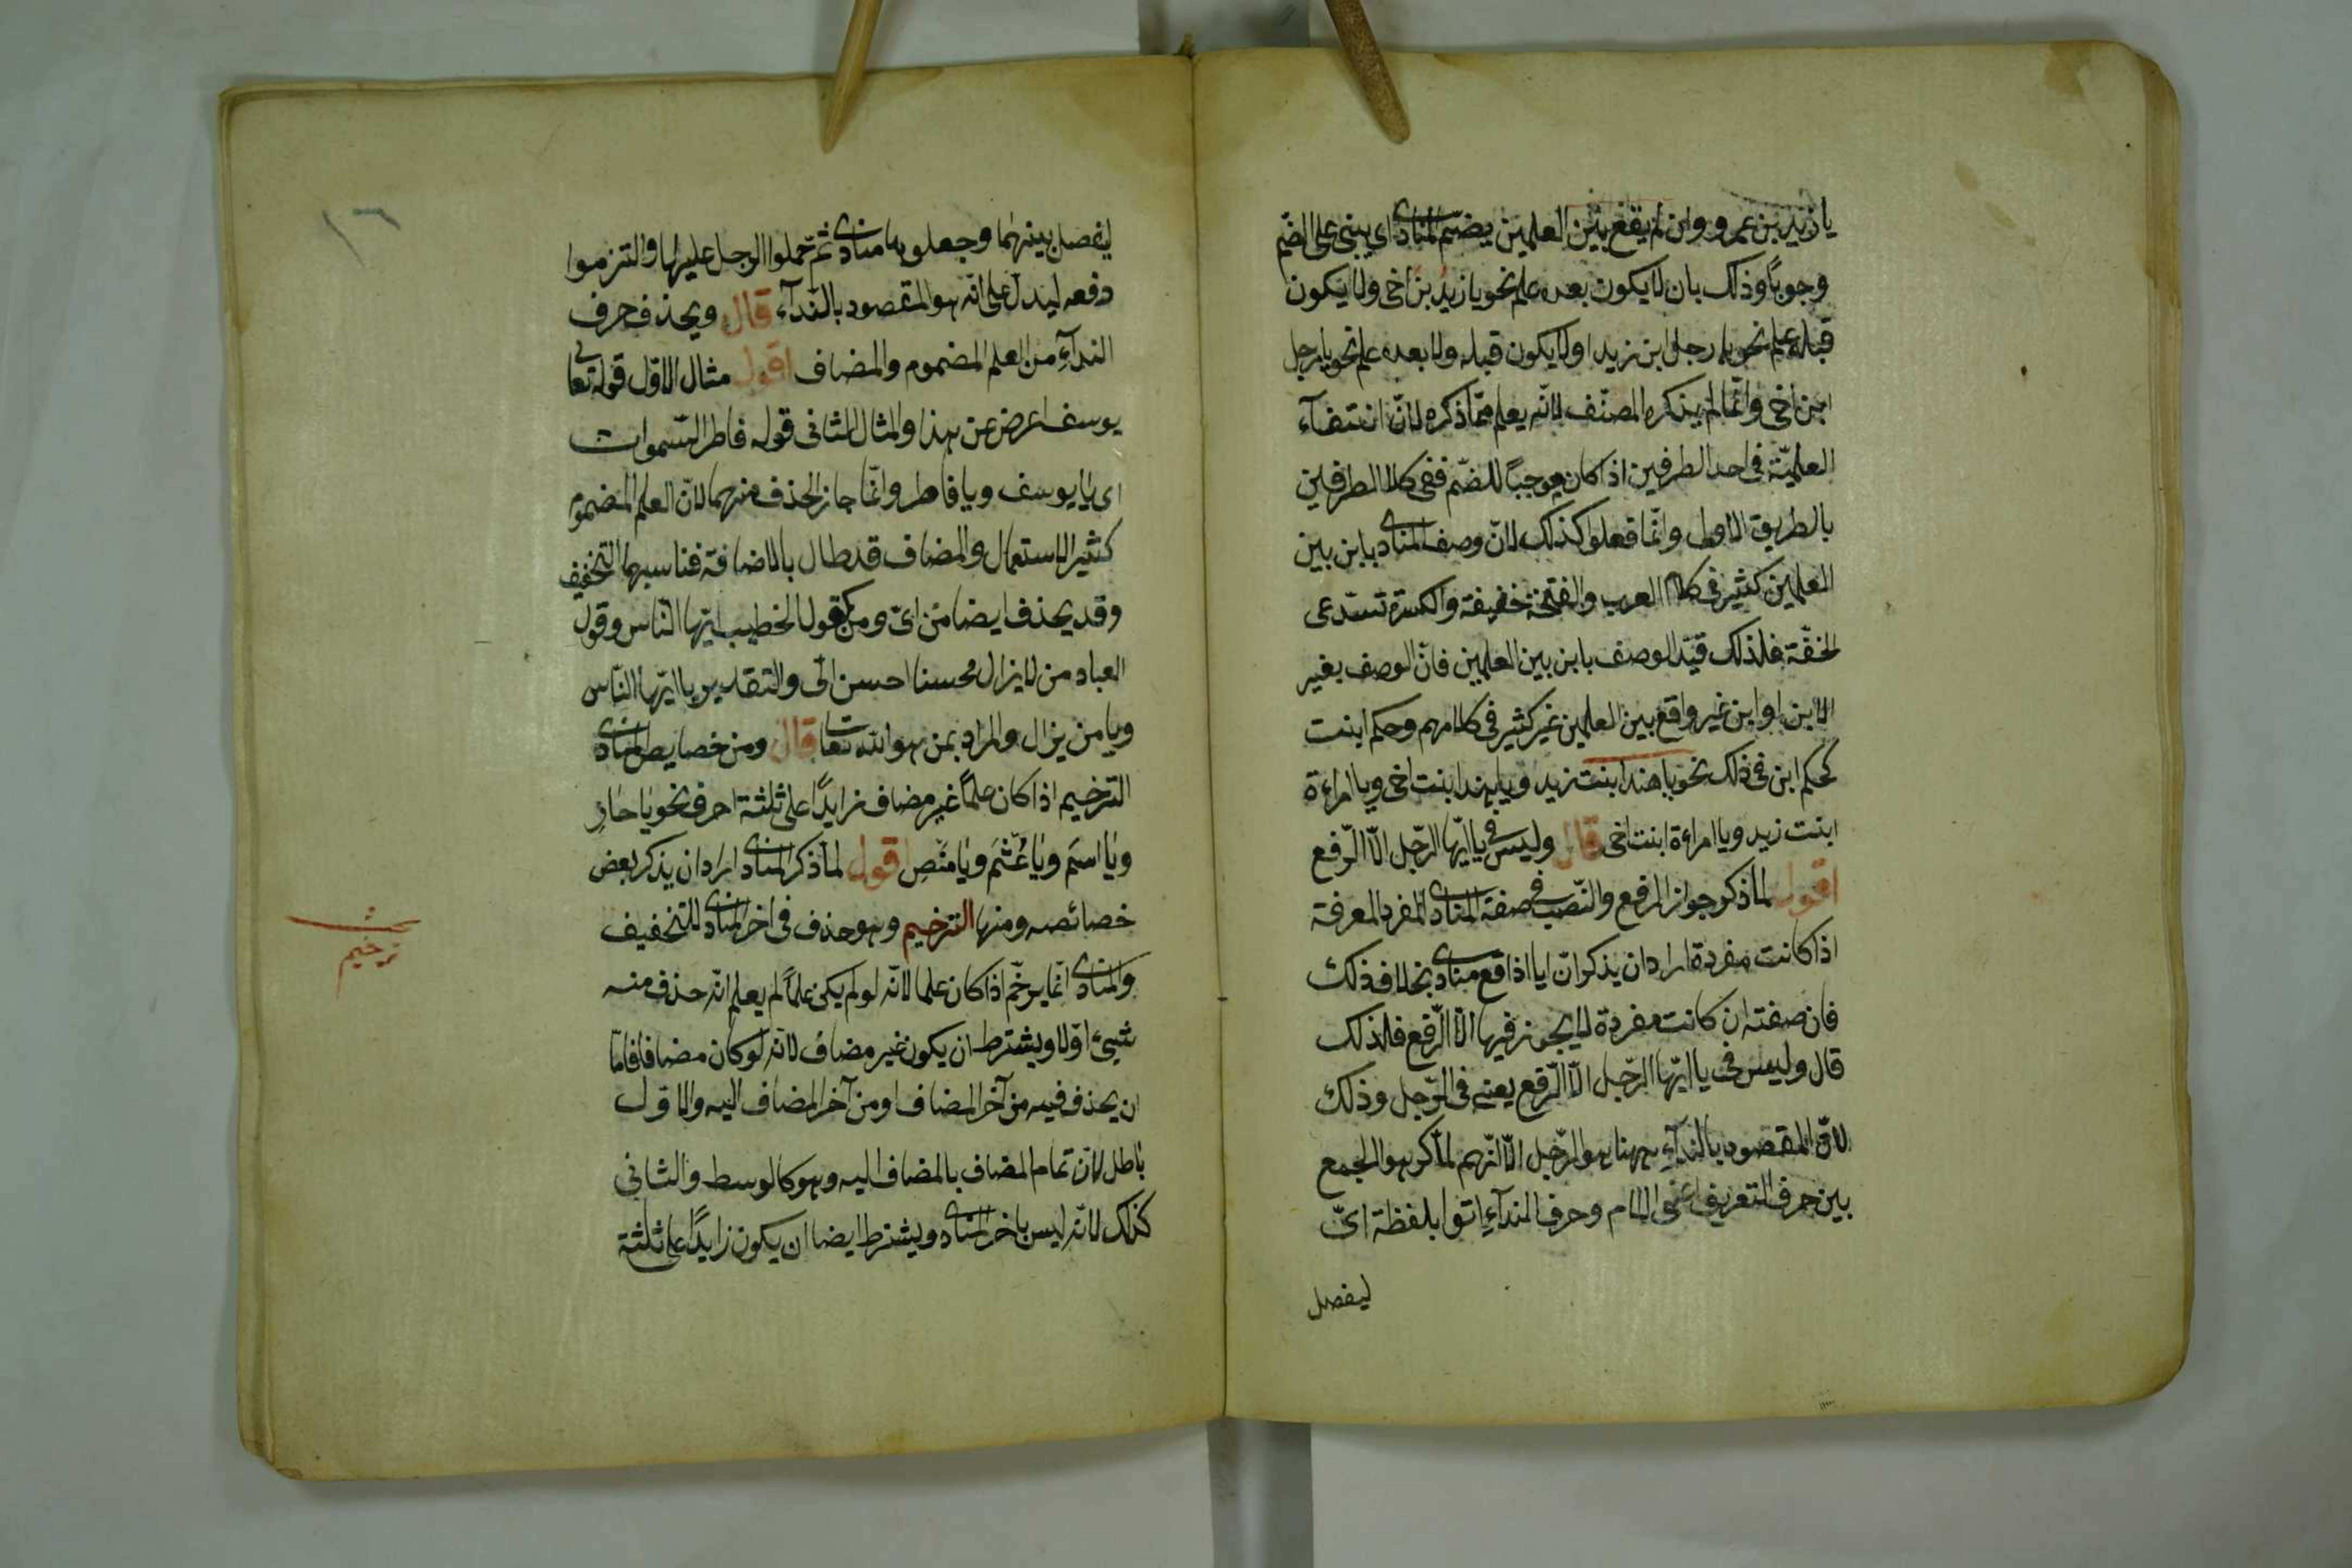 يا زيد بن عمرو وان لم يقع بين العلمين يضمّ المنادى اى يبنى على الضم
وجوبًا وذلك بان لا يكون بعده علم نحو يا زيدُ بنُ اخى ولا يكون
قبله علم نحو يا رجل ابن زيد او لا يكون قبله ولا بعده علم نحو يا رجل
ابن اخى وانّما لم يذكره المصنّف لانّه يعلم ممّا ذكره لانّ انتفآء
العلميّة فى احد الطرفين اذا كان موجبًا للضّم ففى كلا الطرفين
بالطريق الاولى وانّما فعلوا كذلك لانّ وصف المنادى بابن بين
العلمين كثير فى كلام العرب والفتحة خفيفة والكسرة تستدعى
الخفّة فلذلك قيّد الوصف بابن بين العلمين فانّ الوصف بغير
الابن او ابن غير واقع بين العلمين غير كثير فى كلامهم وحكم ابنت
كحكم ابن فى ذلك نحو يا هند ابنت زيد ويا هند ابنت اخى ويا امراءة
ابنت زيد ويا امراءة ابنت اخى قال وليس فى يا ايّها الرّجل الّا الرّفع
اقول لما ذكر جواز الرفع والنّصب فى صفة المنادى المفرد المعرفة
اذا كانت مفردة اراد ان يذكر انّ ايا اذا وقع منادى بخلاف ذلك
فان صفته ان كانت مفردة لا يجوز فيها الّا الرّفع فلذلك
قال وليس فى يا ايّها الرّجل الّا الرّفع يعنى فى الرّجل وذلك
لانّ المقصود بالندآء ههنا هو الرّجل الّا انّهم لما كرهوا الجمع
بين حرف التعريف اعنى اللام وحرف الندآء اتوا بلفظة اىّ
ليفصل
١٦
ليفصل بينهما وجعلوها منادى ثمّ حملوا الرجل عليها والتزموا
رفعه ليدلّ على انّه هو المقصود بالندآء قال ويحذف حرف
الندآء من العلم المضموم والمضاف اقول مثال الاوّل قوله تعالى
يوسف اعرض عن هذا والمثال الثانى قوله فاطر السّموات
اى يا يوسف ويا فاطر وانّما جاز الحذف منهما لانّ العلم المضموم
كثير الاستعمال والمضاف قد طال بالاضافة فناسبهما التخفيف
وقد يحذف ايضا من اىّ ومن كقول الخطيب ايّها النّاس وقول
العباد من لا يزال محسنا احسن الىّ والتقدير يا ايّها النّاس
ويا من يزال والمراد بمن هو الله تعا قال ومن خصايص المنادى
الترخيم اذا كان علمًا غير مضاف زايدًا على ثلثة احرف نحو يا حارِ
ويا اسمَ ويا عُثمَ ويا منصِ اقول لما ذكر المنادى اراد ان يذكر بعض
خصائصه ومنها الترخيم وهو حذف فى اخر المنادى للتخفيف
والمنادى انّما يرخّم اذا كان علما لانّه لو لم يكن علمًا لم يعلم انّه حذف منه
شيىء اوّلا ويشترط ان يكون غير مضاف لانّه لو كان مضافا فامّا
ان يحذف فيه من آخر المضاف او من آخر المضاف اليه والاوّل
باطل لانّ تمام المضاف بالمضاف اليه وهو كالوسط والثانى
كذلك لانّه ليس باخر المنادى ويشترط ايضا ان يكون زايدًا على ثلثة
بحث
ترخيم